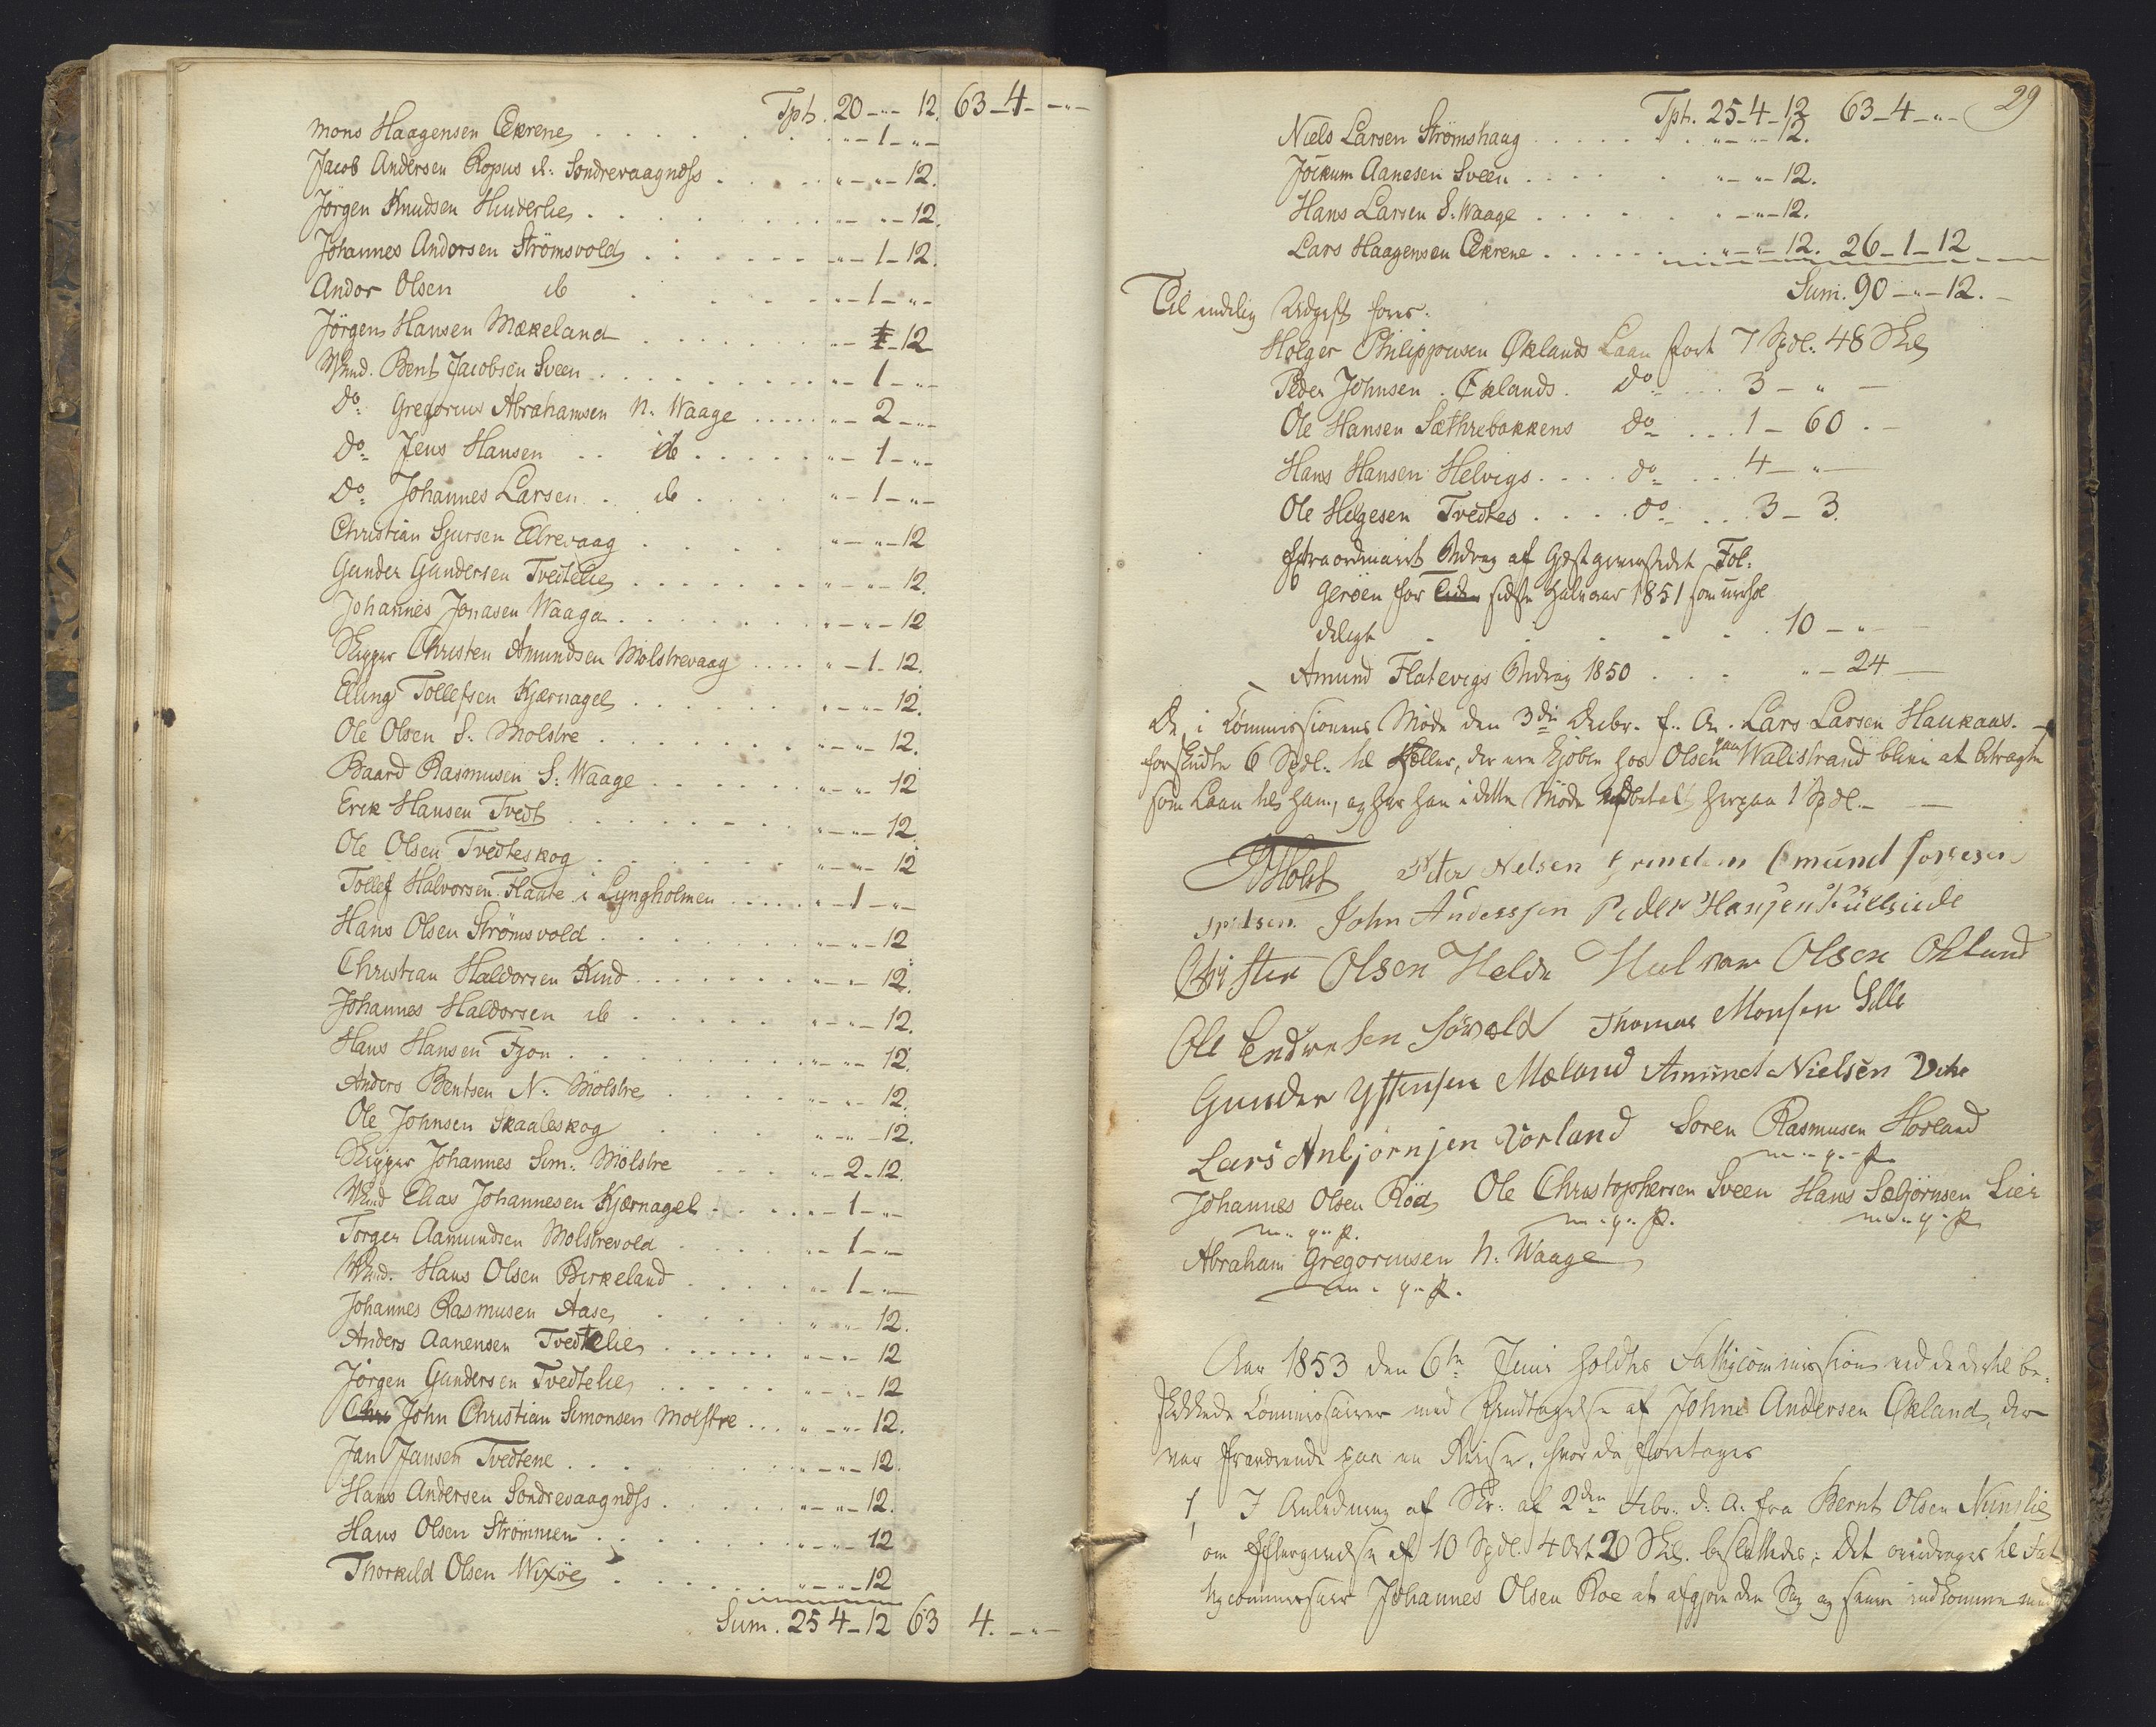 Tpt. 20 - " - 12. 63 - 4 - " -
Mons Haagensen Ekrene . . . " - 1 - " -
Jacob Andersen Ropus d: Sondrevaagnæss . . . " - " - 12.
Jörgen Knudsen Hinderlie . . . " - " - 12.
Johannes Andersen Strömsvold . . . " - 1 - 12.
Andor Olsen ib . . . " - 1 - " -
Jörgen Hansen Mækeland . . . " - 1 - 12
Bent Jacobsen Sveen . . . " - 1 - " -
Do. Gregorius Abrahamsen N. Waage . . . " - 2 - " -
Do. Jens Hansen . . ib . . . " - 1 - " -
Do. Johannes Larsen . ib . . . " - 1 - " -
Christian Sjursen Elrevaag . . . " - " - 12
Gunder Gundersen Tvedtelie . . . " - " - 12.
Johannes Jonasen Waage . . . " - " - 12
Skipper Christen Amundsen Molstrevaag . . . " - 1 - 12.
Elling Tollefsen Kjærnagel . . . " - " - 12.
Ole Olsen S. Molstre . . . " - " - 12.
Baard Rasmusen S. Waage . . . " - " - 12
Erik Hansen Tvedt . . . " - " - 12.
Ole Olsen Tvedteskog . . . " - " - 12
Tollef Halvorsen Flaate i Lyngholmen . . . " - 1 - " -
Hans Olsen Strömsvold . . . " - " - 12
Christian Haldorsen Kind . . . " - " - 12.
Johannes Haldorsen ib . . . " - " - 12.
Hans Hansen Fjon . . . " - " - 12.
Anders Bentsen N. Molstre . . . " - " - 12.
Ole Johnsen Skaaleskog . . . " - " - 12.
Skipper Johannes Sim: Mölstre . . . " - 2 - 12.
Elias Johannesen Kjærnagel . . . " - 1 - " -
Torger Aamundsen Molstrevold . . . " - 1 - " -
Hans Olsen Birkeland . . . " - 1 - " -
Johannes Rasmusen Aase . . . " - " - 12.
Anders Aanensen Tvedtelie . . . " - " - 12
Jörgen Gundersen Tvedtelie . . . " - " - 12
John Christian Simonsen Molstre . . . " - " - 12.
Jan Jansen Tvedtene . . . " - " - 12.
Hans Andersen Sondrevaagnæss . . . " - " - 12.
Hans Olsen Strömmen . . . " - " - 12
Thorkild Olsen Wixöe . . . " - " - 12
Sum. 25 4 - 12 63 4. - " -
29
Tpt. 25 - 4 - 12 63 - 4 - " -
Niels Larsen Strömshaug . . . " - " - 12.
Jockum Aanesen Sveen . . . " - " - 12.
Hans Larsen S. Waage . . . " - " - 12.
Lars Haagensen Ekrene . . . " - " - 12. 26 - 1 - 12
Sum. 90 - " - 12. -
Til endelig Udgift føres:
Holger Philippousen Øklands Laan stort 7 Spdl. 48 Skl
Peder Johnsen Øklands. Do . . 3 - " -
Ole Hansen Sæthrebakkens Do . . . 1 - 60 . -
Hans Hansen Helvigs . . . do . . . 4 - " -
Ole Helgesen Tvedtes . . . do . . . 3 - 3.
Extraordinairt Bidrag af Gjæstgiverstedet Fol-
geröen for sidste Halvaar 1851 som uerhol
deligt . . . 10 - " -
Amund Flatevigs Bidrag 1850 . . . " - 24 -
De, i Commissionens Møde den 3die Decbr. f. A. Lars Larsen Haukaas
forskudte 6 Spdl. til Heller, der ere kjøbte hos Olsen paa Walistrand bliver at betragte
som Laan til ham, og har han i dette Møde udbetalt herpaa 1 Spdl. -
Holst Peter Nelsen Amund
John Anderssen Peder Hansen
Christen Olsen Helde Halvor Olsen Okland
Ole Endresen Thomas Monsen Lille
Gunder Mæland Amund Nielsen
Lars Anbjørnsen Vorland Soren Rasmusen Hovland
m. p. p.
Johannes Olsen Röe Ole Christophersen Sveen Hans Sæbjörnsen Lier
m. p. p. m. p. p. m. p. p.
Abraham Gregoriusen N. Waage
m. p. p.
Aar 1853 den 6te Juni holdtes Fattigcommission ved de dertil be-
skikkede Commissairer med Undtagelse af Johne Andersen Økland, der
var fraværende paa en Reise, hvor da foretoges
1, I Anledning af Skr. af 2den Febr. d. A. fra Bernt Olsen Nunslie
om Eftergivelse af 10 Spdl. 4 Ort 20 Skl. besluttedes: Det overdrages til Fat
tigcommissair Johannes Olsen Roe at afgjøre den Sag og senere indkomme med